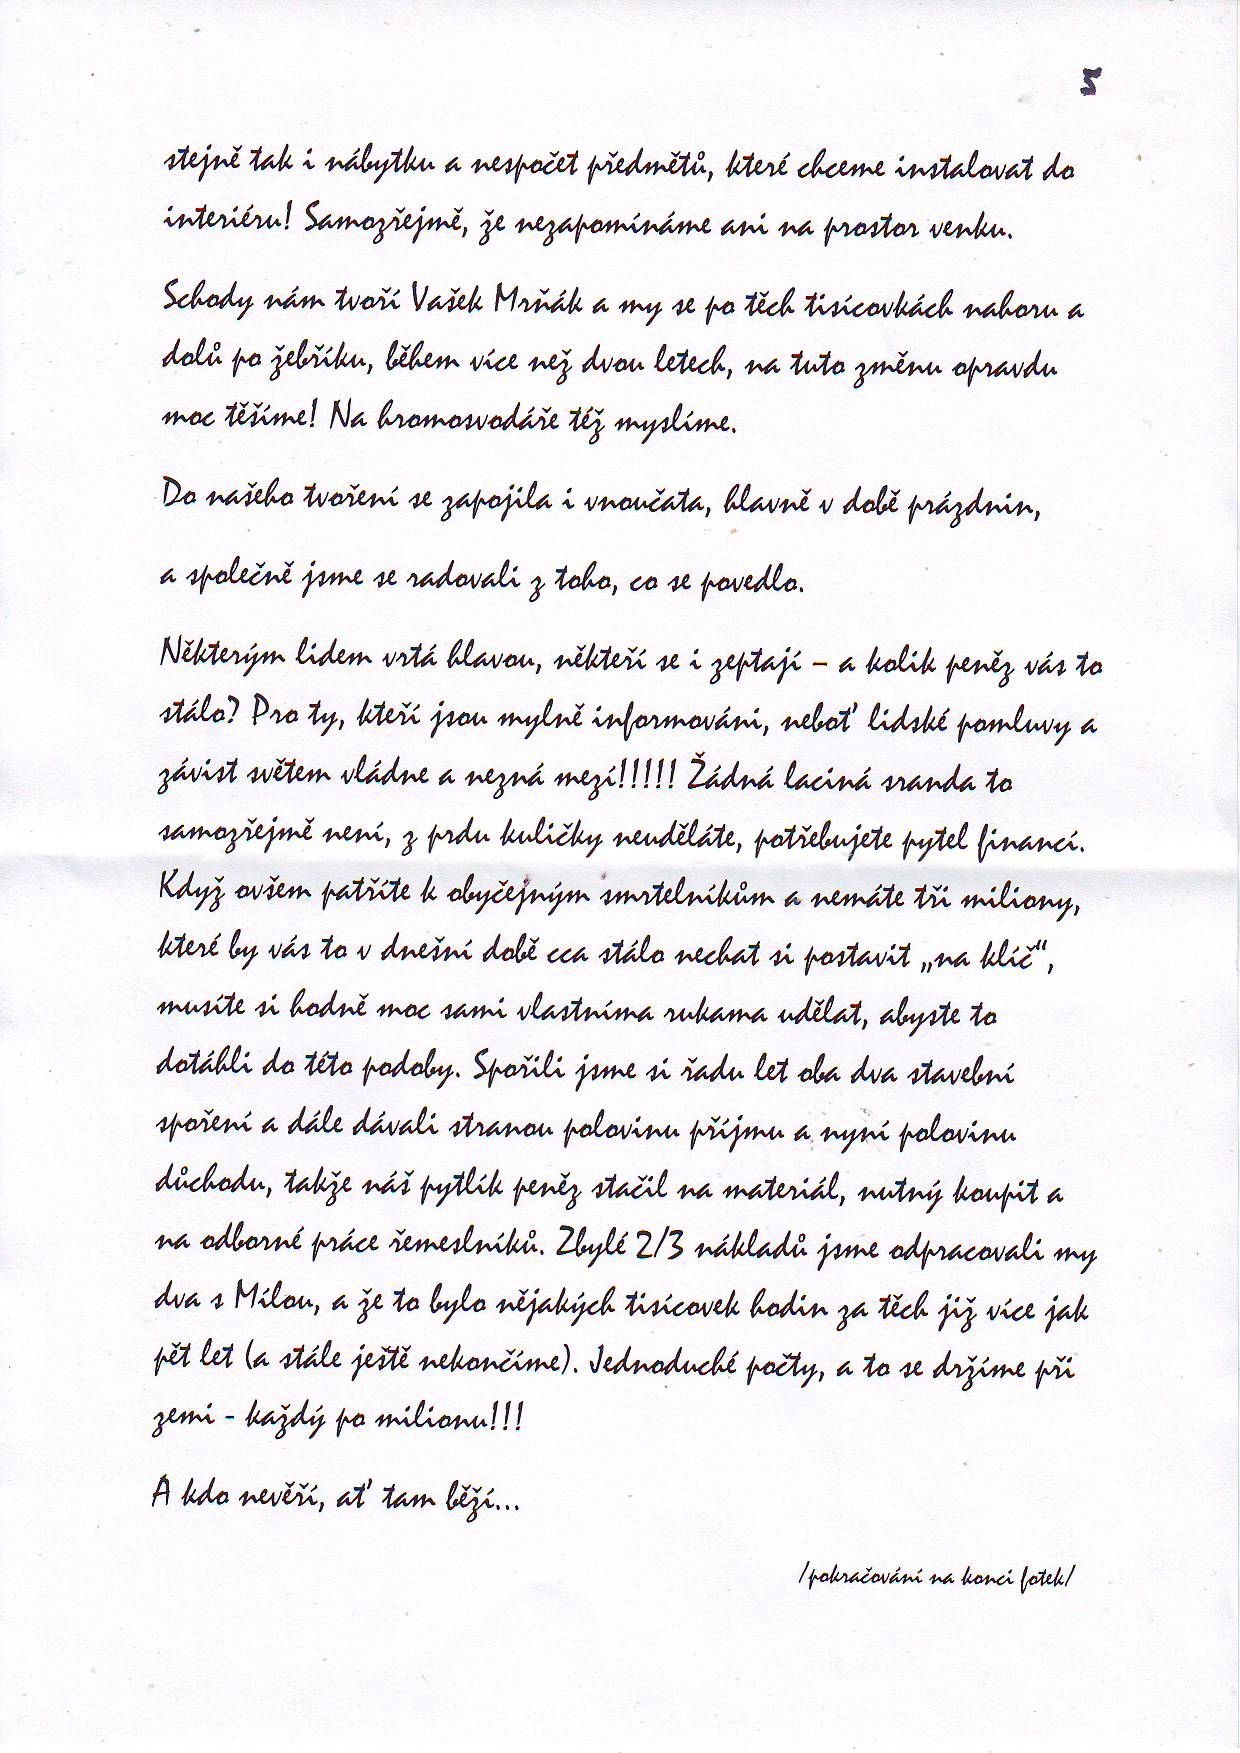 5
stejně tak i nábytku a nespočet předmětů, které chceme instalovat do
interiéru! Samozřejmě, že nezapomínáme ani na prostor venku.
Schody nám tvoří Vašek Mrňák a my se po těch tisícovkách nahoru a
dolů po žebříku, během více než dvou letech, na tuto změnu opravdu
moc těšíme! Na hromosvodáře též myslíme.
Do našeho tvoření se zapojila i vnoučata, hlavně v době prázdnin,
a společně jsme se radovali z toho, co se povedlo.
Některým lidem vrtá hlavou, někteří se i zeptají – a kolik peněz vás to
stálo? Pro ty, kteří jsou mylně informováni, neboť lidské pomluvy a
závist světem vládne a nezná mezí!!!!! Žádná laciná sranda to
samozřejmě není, z prdu kuličky neuděláte, potřebujete pytel financí.
Když ovšem patříte k obyčejným smrtelníkům a nemáte tři miliony,
které by vás to v dnešní době cca stálo nechat si postavit „na klíč“,
musíte si hodně moc sami vlastníma rukama udělat, abyste to
dotáhli do této podoby. Spořili jsme si řadu let oba dva stavební
spoření a dále dávali stranou polovinu příjmu a nyní polovinu
důchodu, takže náš pytlík peněz stačil na materiál, nutný koupit a
na odborné práce řemeslníků. Zbylé 2/3 nákladů jsme odpracovali my
dva s Mílou, a že to bylo nějakých tisícovek hodin za těch již více jak
pět let (a stále ještě nekončíme). Jednoduché počty, a to se držíme při
zemi - každý po milionu!!!
A kdo nevěří, ať tam běží...
/pokračování na konci fotek/